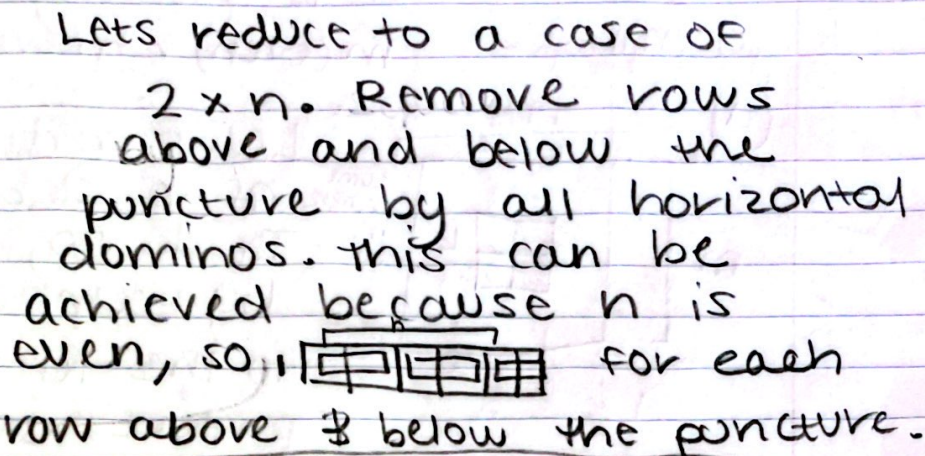 Lets reduce to a case of
2 x n. Remove rows
above and below the
puncture by all horizontal
dominos. this can be
achieved because n is
n
even, so, for each
row above & below the puncture.